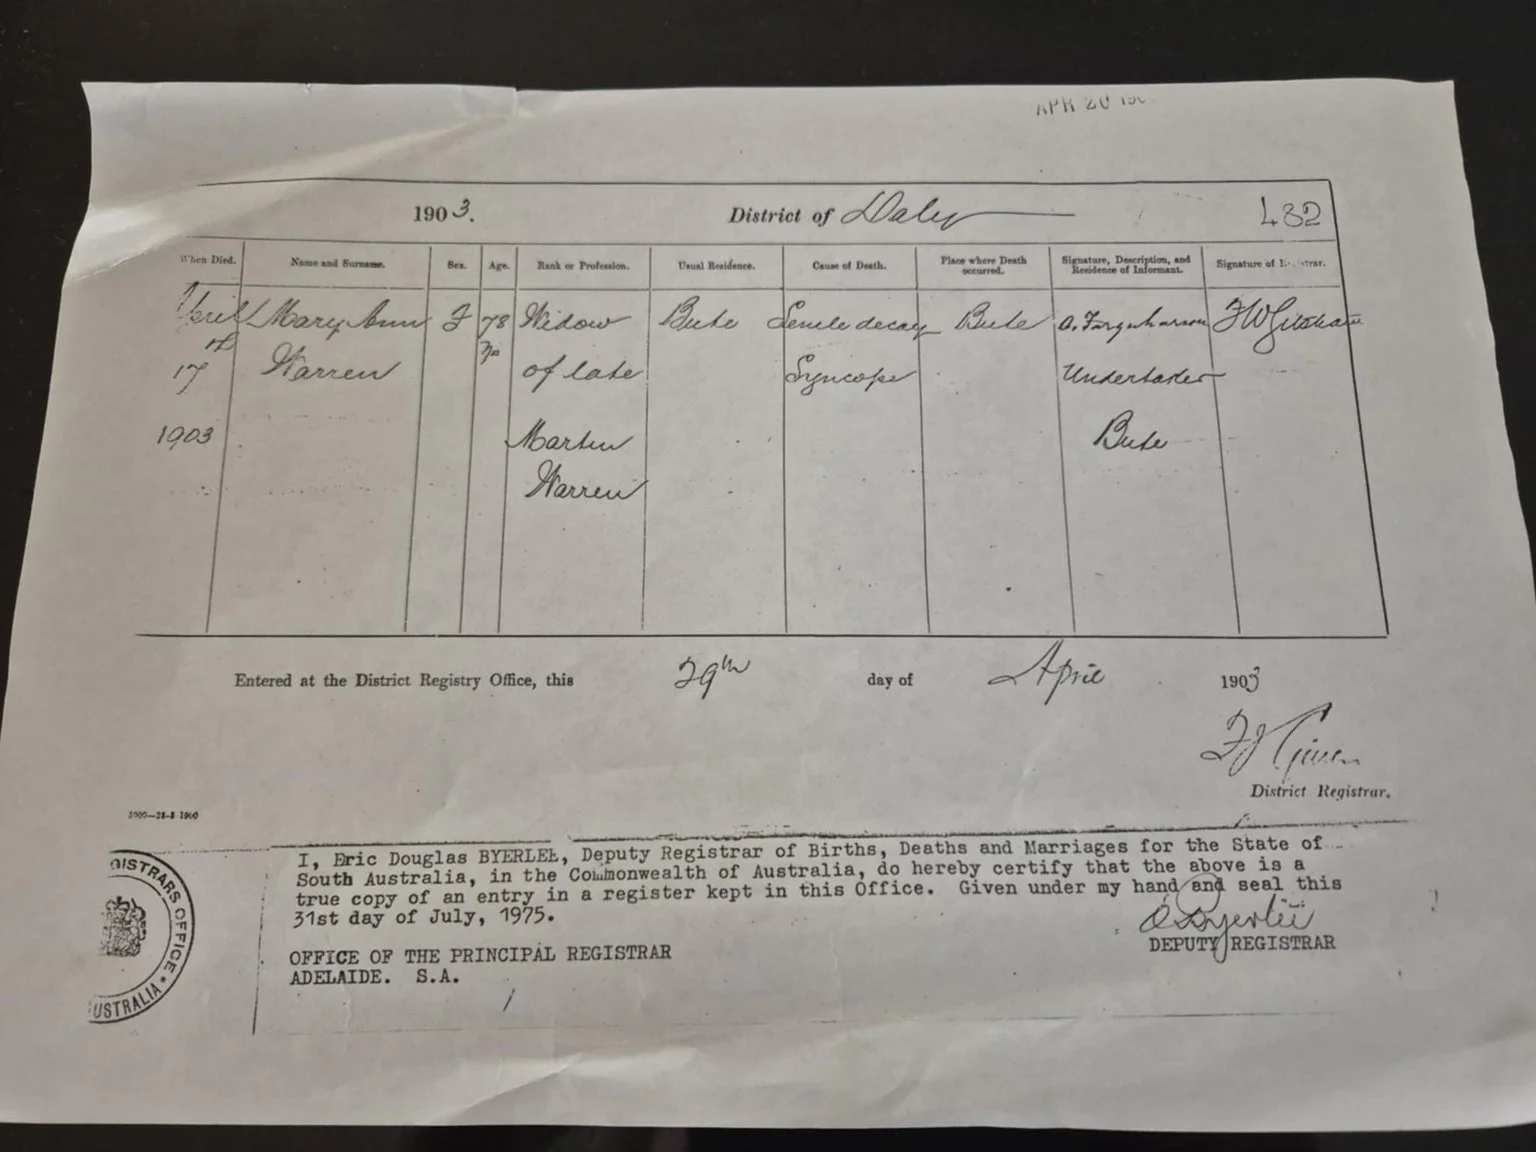 APR 20 190
1903. District of Daly 432
When Died. Name and Surname. Sex. Age. Rank or Profession. Usual Residence. Cause of Death. Place where Death occurred. Signature, Description, and Residence of Informant. Signature of Registrar.
April Mary Ann F 78 Widow Bute Senile decay Bute A. Farquharson
17 Warren of late Syncope Undertaker
1903 Martin Bute
Warren
Entered at the District Registry Office, this 29th day of April 1903
District Registrar.
I, Eric Douglas BYERLEE, Deputy Registrar of Births, Deaths and Marriages for the State of
South Australia, in the Commonwealth of Australia, do hereby certify that the above is a
true copy of an entry in a register kept in this Office. Given under my hand and seal this
31st day of July, 1975.
DEPUTY REGISTRAR
OFFICE OF THE PRINCIPAL REGISTRAR
ADELAIDE. S.A.
GISTRARS OFFICE • USTRALIA